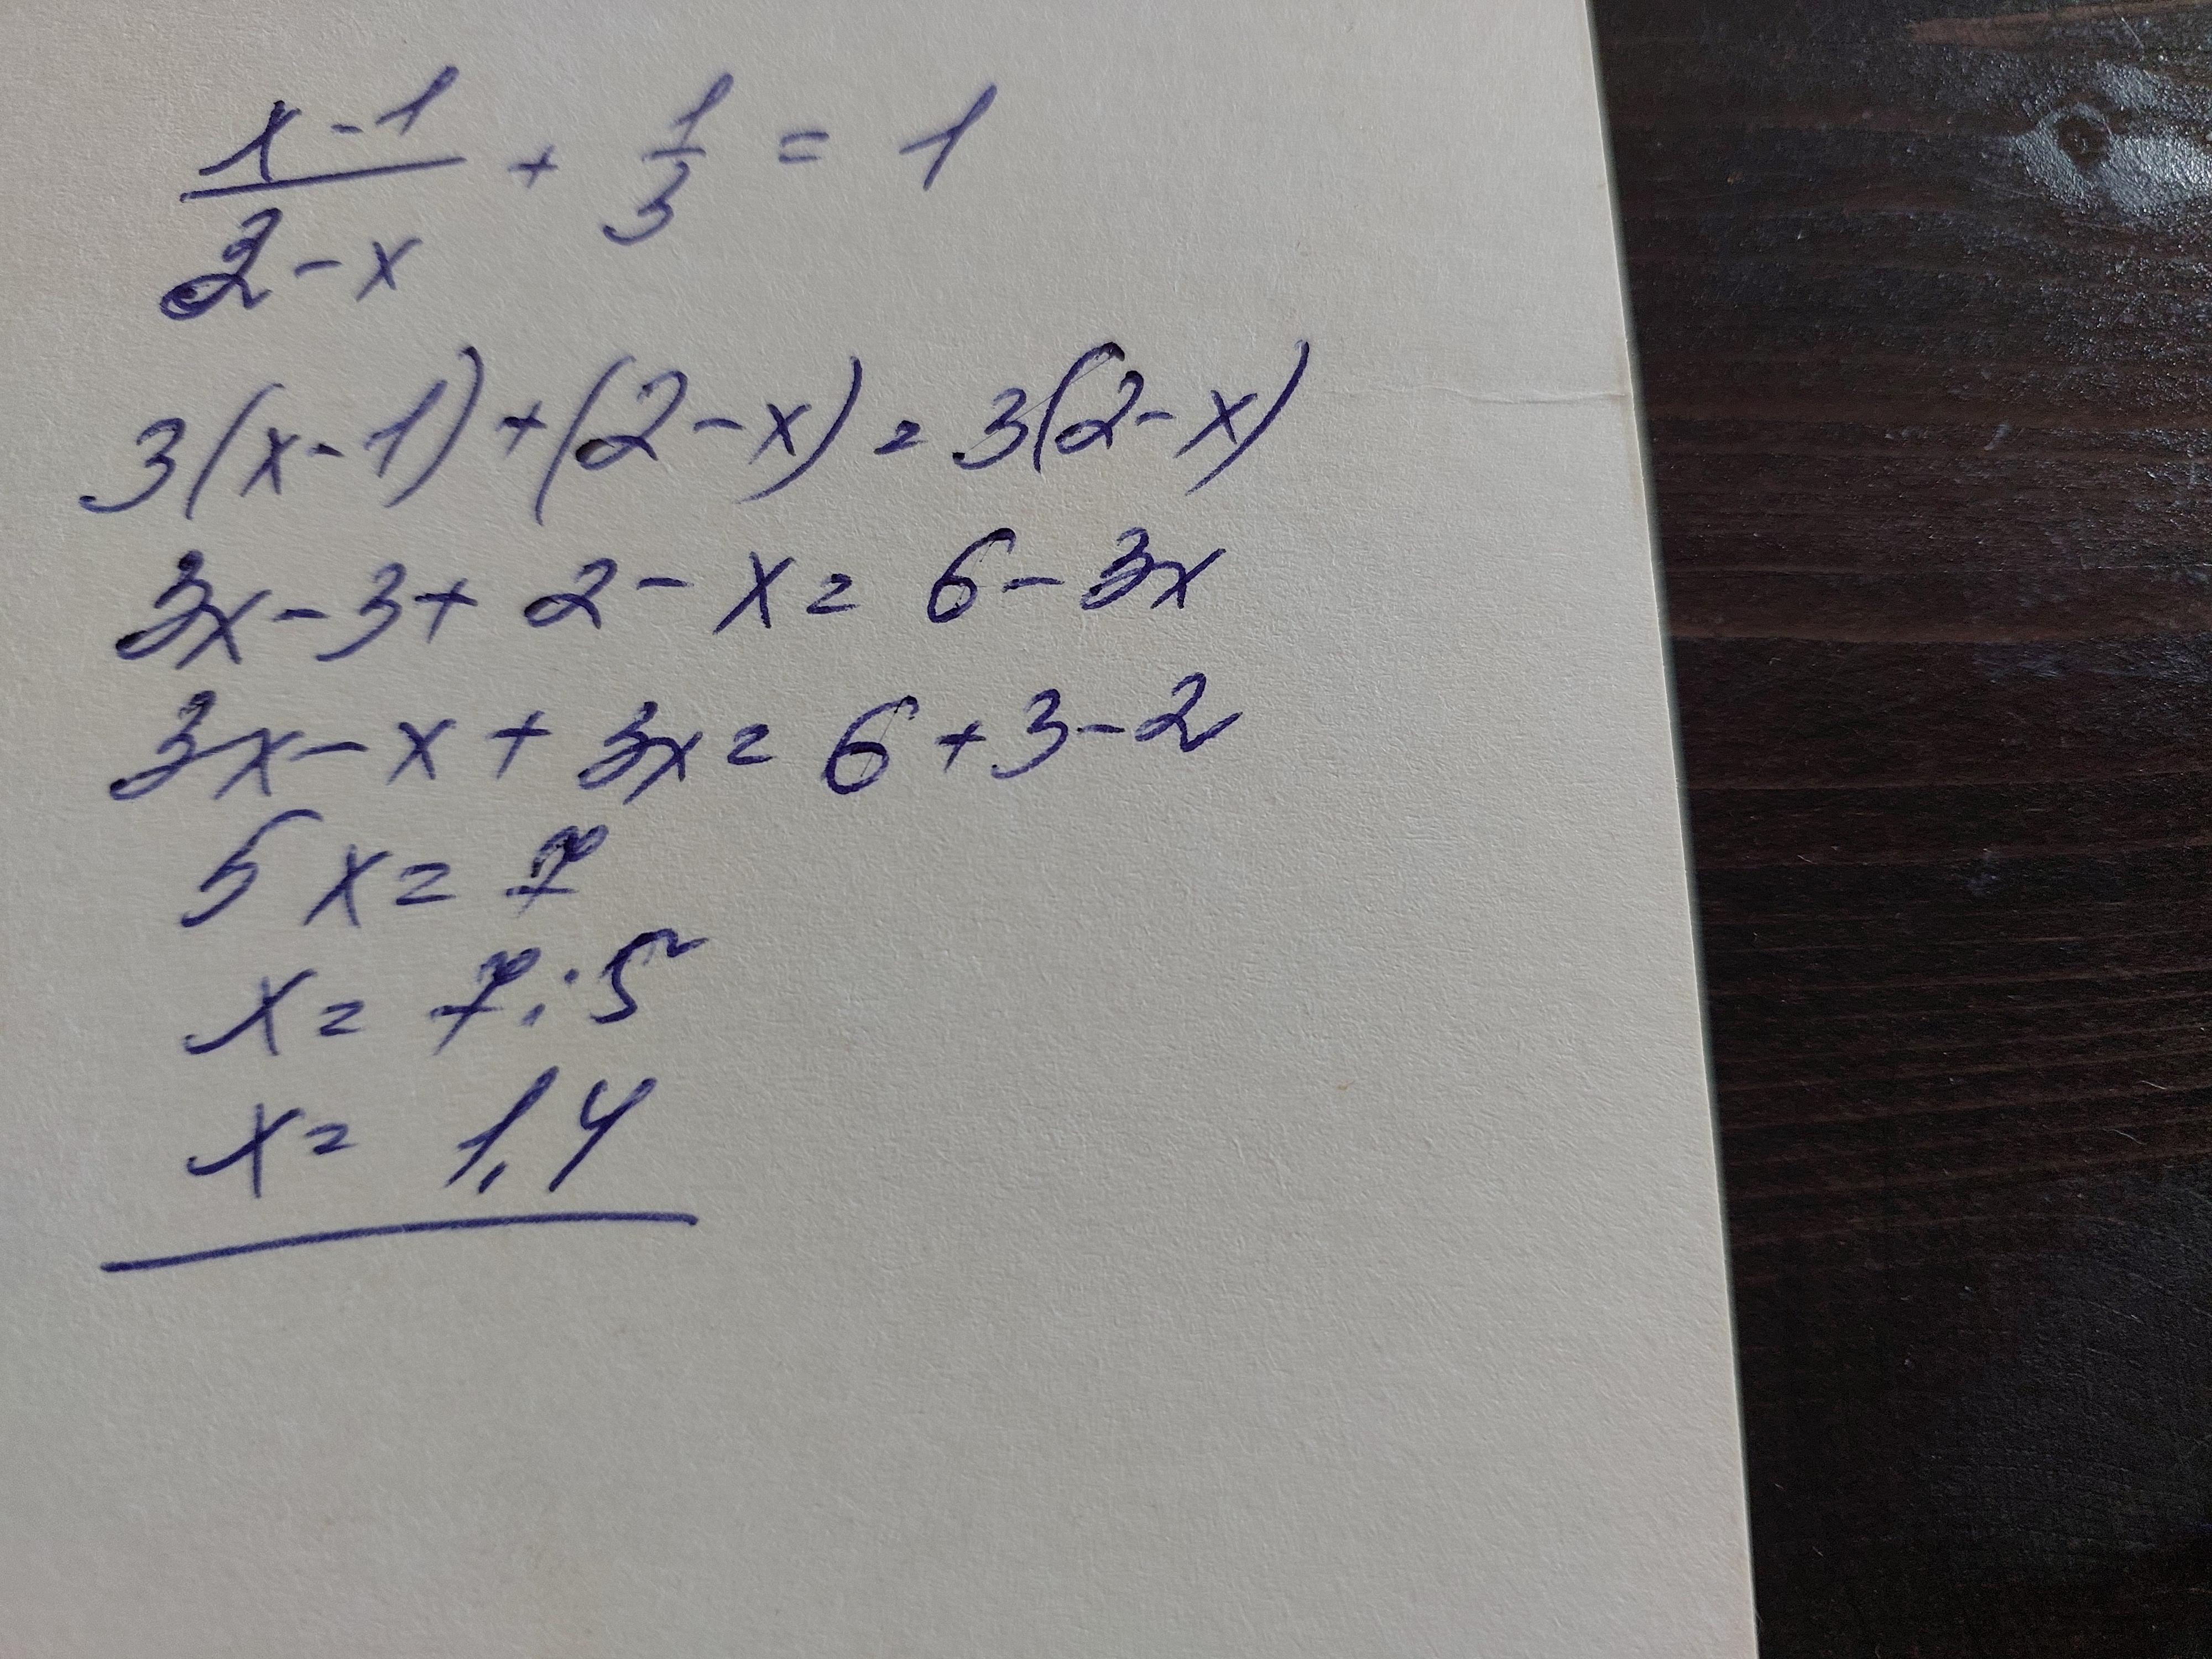 (x-1)/(2-x) + 1/3 = 1
3(x-1)+(2-x)=3(2-x)
3x-3+2-x=6-3x
3x-x+3x=6+3-2
5x=7
x=7:5
x=1,4